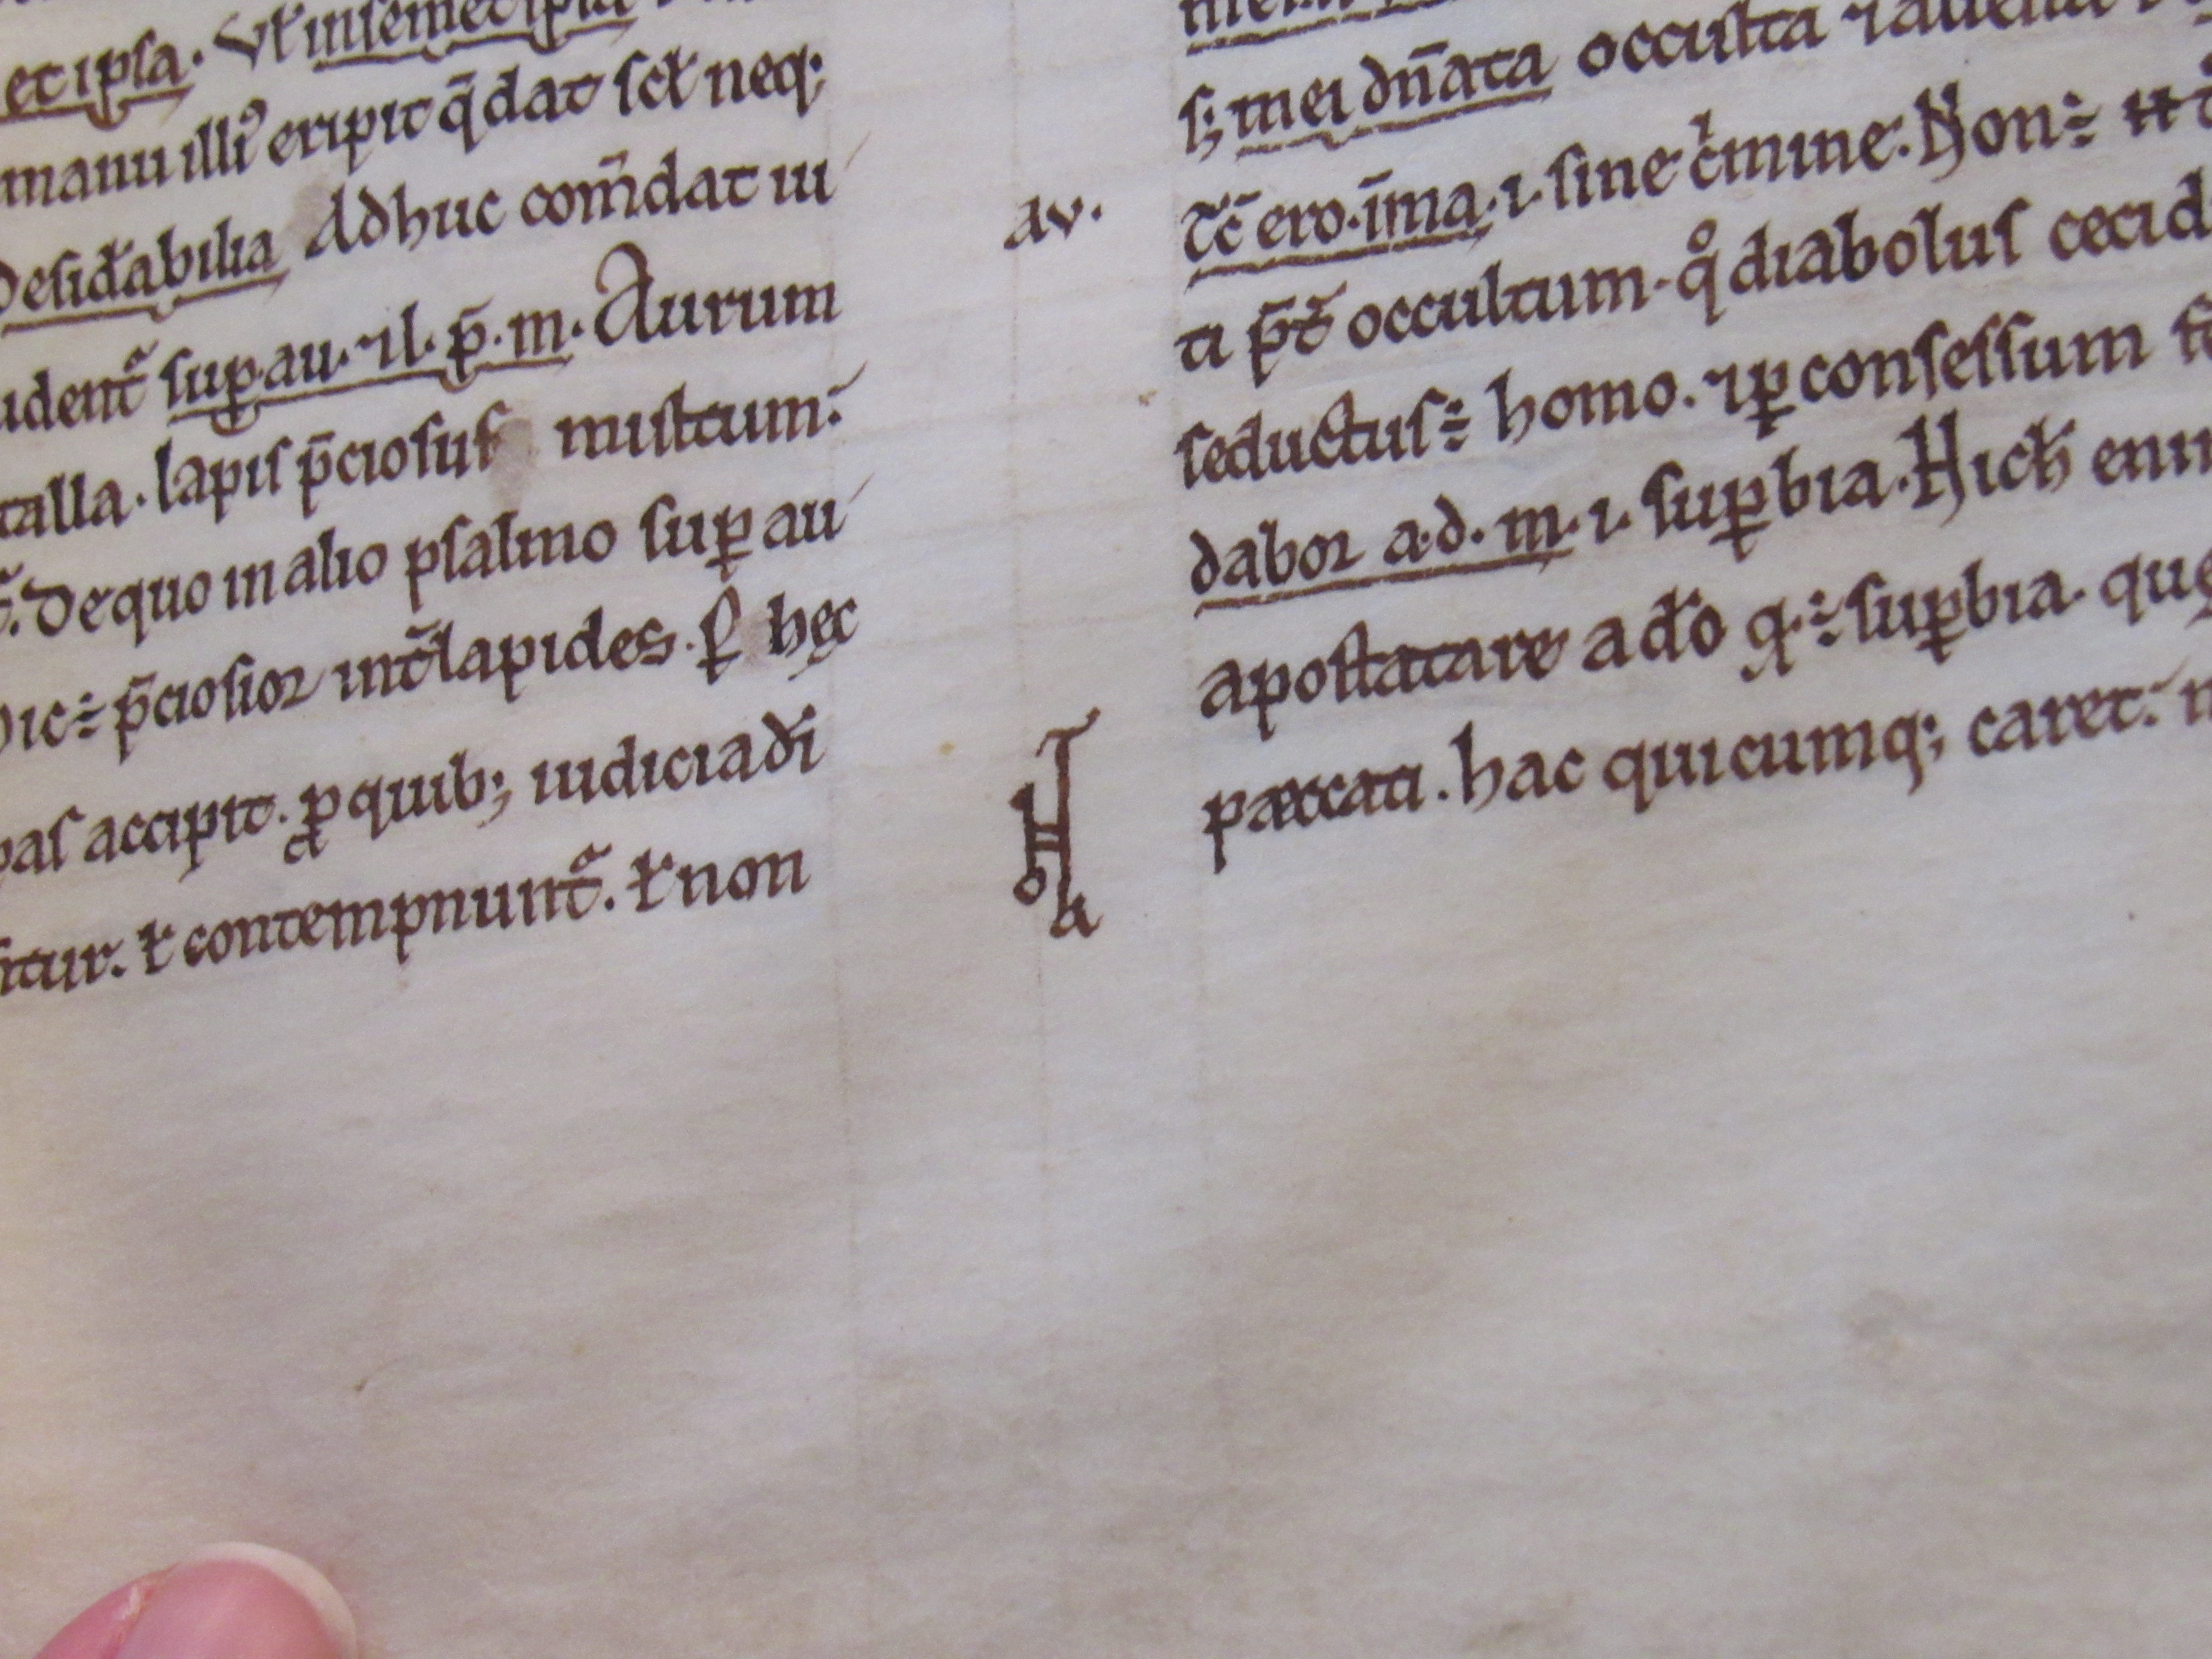 et ipsa. Vł in semet ipsa
manu illiꝰ eripit q̄ dat scł neq;
Desid̄abilia Adhuc com̄dat iu
udent᷑ sup̱ au. ⁊ l. p̄. m. Aurum
talla. lapis p̄ciosus mistum.
De quo in alio psalmo sup̱ au
Hic ÷ p̄ciosior int̄ lapides. ꝑ hęc
pas accipit. ꝓ quib; iudicia dī
itur. ł contempnunt᷑. ł non
s; mei dn̄ata occulta ⁊ aliena
av.
Tc̄ ero. īma. .i. sine cⁱmine. Non ÷
ti p̄t᷑ occultum. qͦ diabolus cecid
seductus ÷ homo. ⁊ ꝑ consessum
dabor a. d. m. .i. suꝑbia. Hich eni
apostatare a do q. ÷ suꝑbia. quę
H
pæccati. hac quicumq; caret.